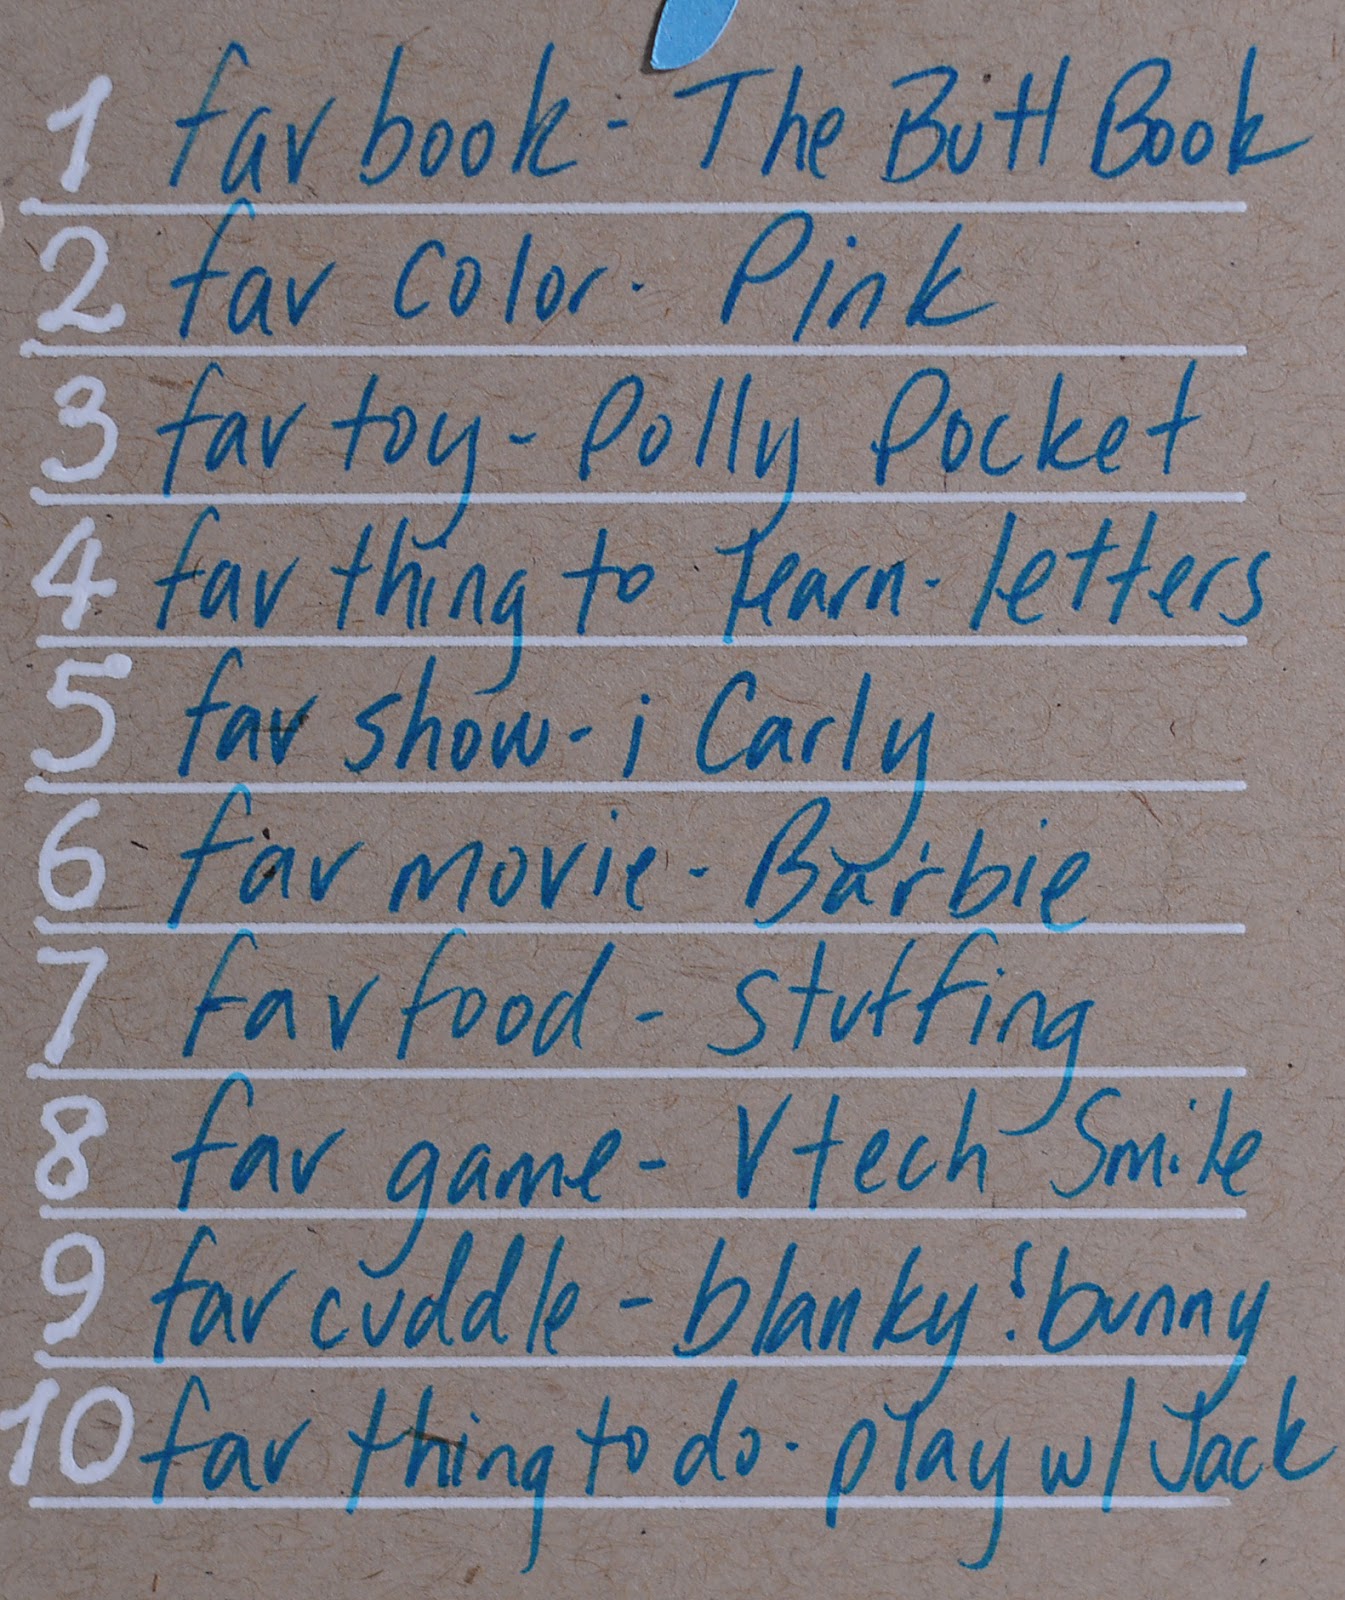 1 fav book - The Butt Book
2 fav color - Pink
3 fav toy - Polly Pocket
4 fav thing to learn - letters
5 fav show - i Carly
6 fav movie - Barbie
7 fav food - stuffing
8 fav game - Vtech Smile
9 fav cuddle - blanky & bunny
10 fav thing to do - play w/ Jack